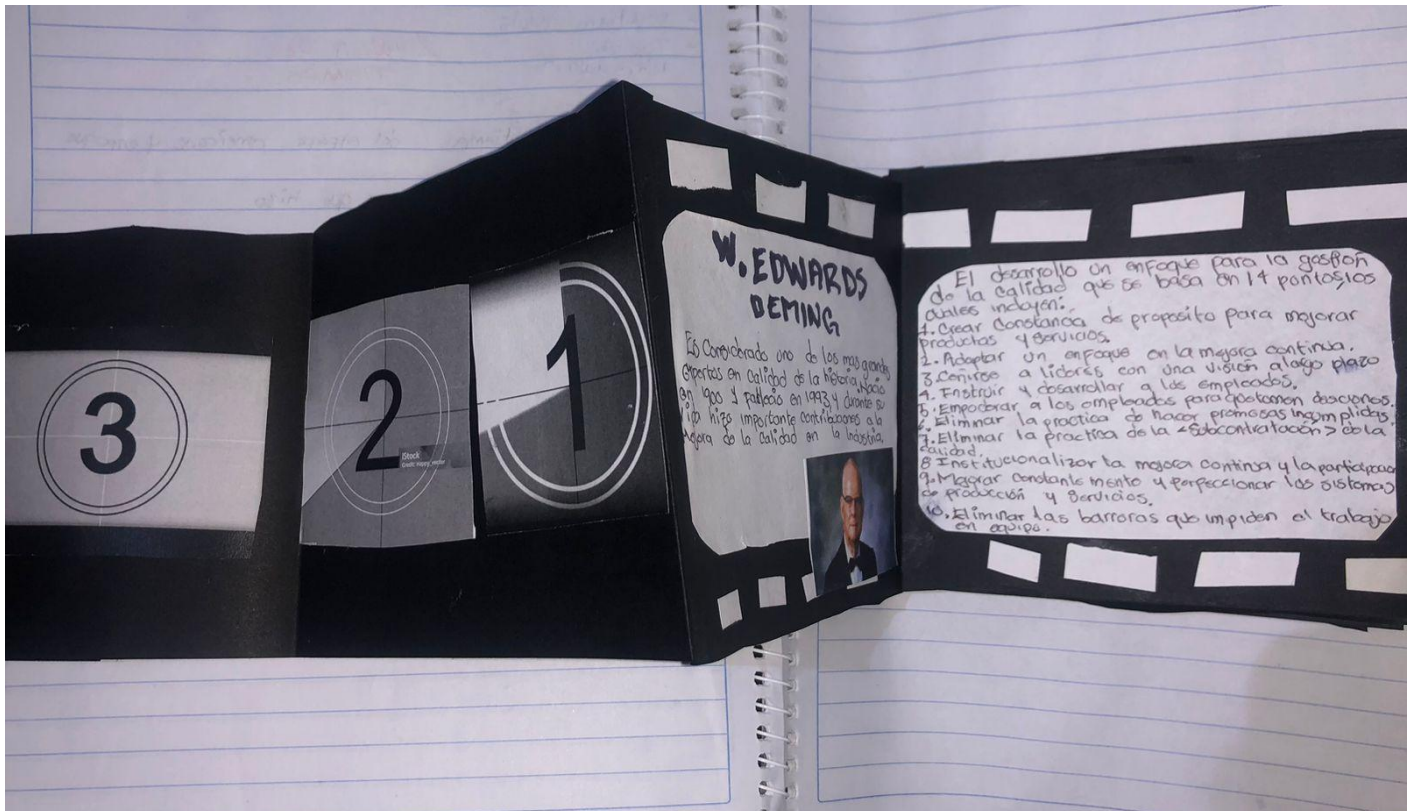 3
2
iStock
1
W. EDWARDS
DEMING
Es Considerado uno de los mas grandes
expertos en calidad de la historia, Nacio
en 1900 y fallecio en 1993, y durante su
vida hizo importante contribuciones a la
mejora de la calidad en la Industria.
El desarrollo un enfoque para la gestion
de la calidad que se basa en 14 puntos, los
cuales incluyen:
1. Crear Constancia de proposito para mejorar
productos y servicios.
2. Adaptar un enfoque en la mejora continua.
3. a lideres con una visión a largo plazo
4. Instruir y desarrollar a los empleados.
5. Empoderar a los empleados para que tomen desciones.
6. Eliminar la practica de hacer promesas incumplidas.
7. Eliminar la practica de la <subcontratación> de la
calidad.
8 Institucionalizar la mejora continua y la participacion
9. Mejorar constante mente y perfeccionar los sistemas
de producción y servicios.
10. Eliminar las barreras que impiden el trabajo
en equipo.